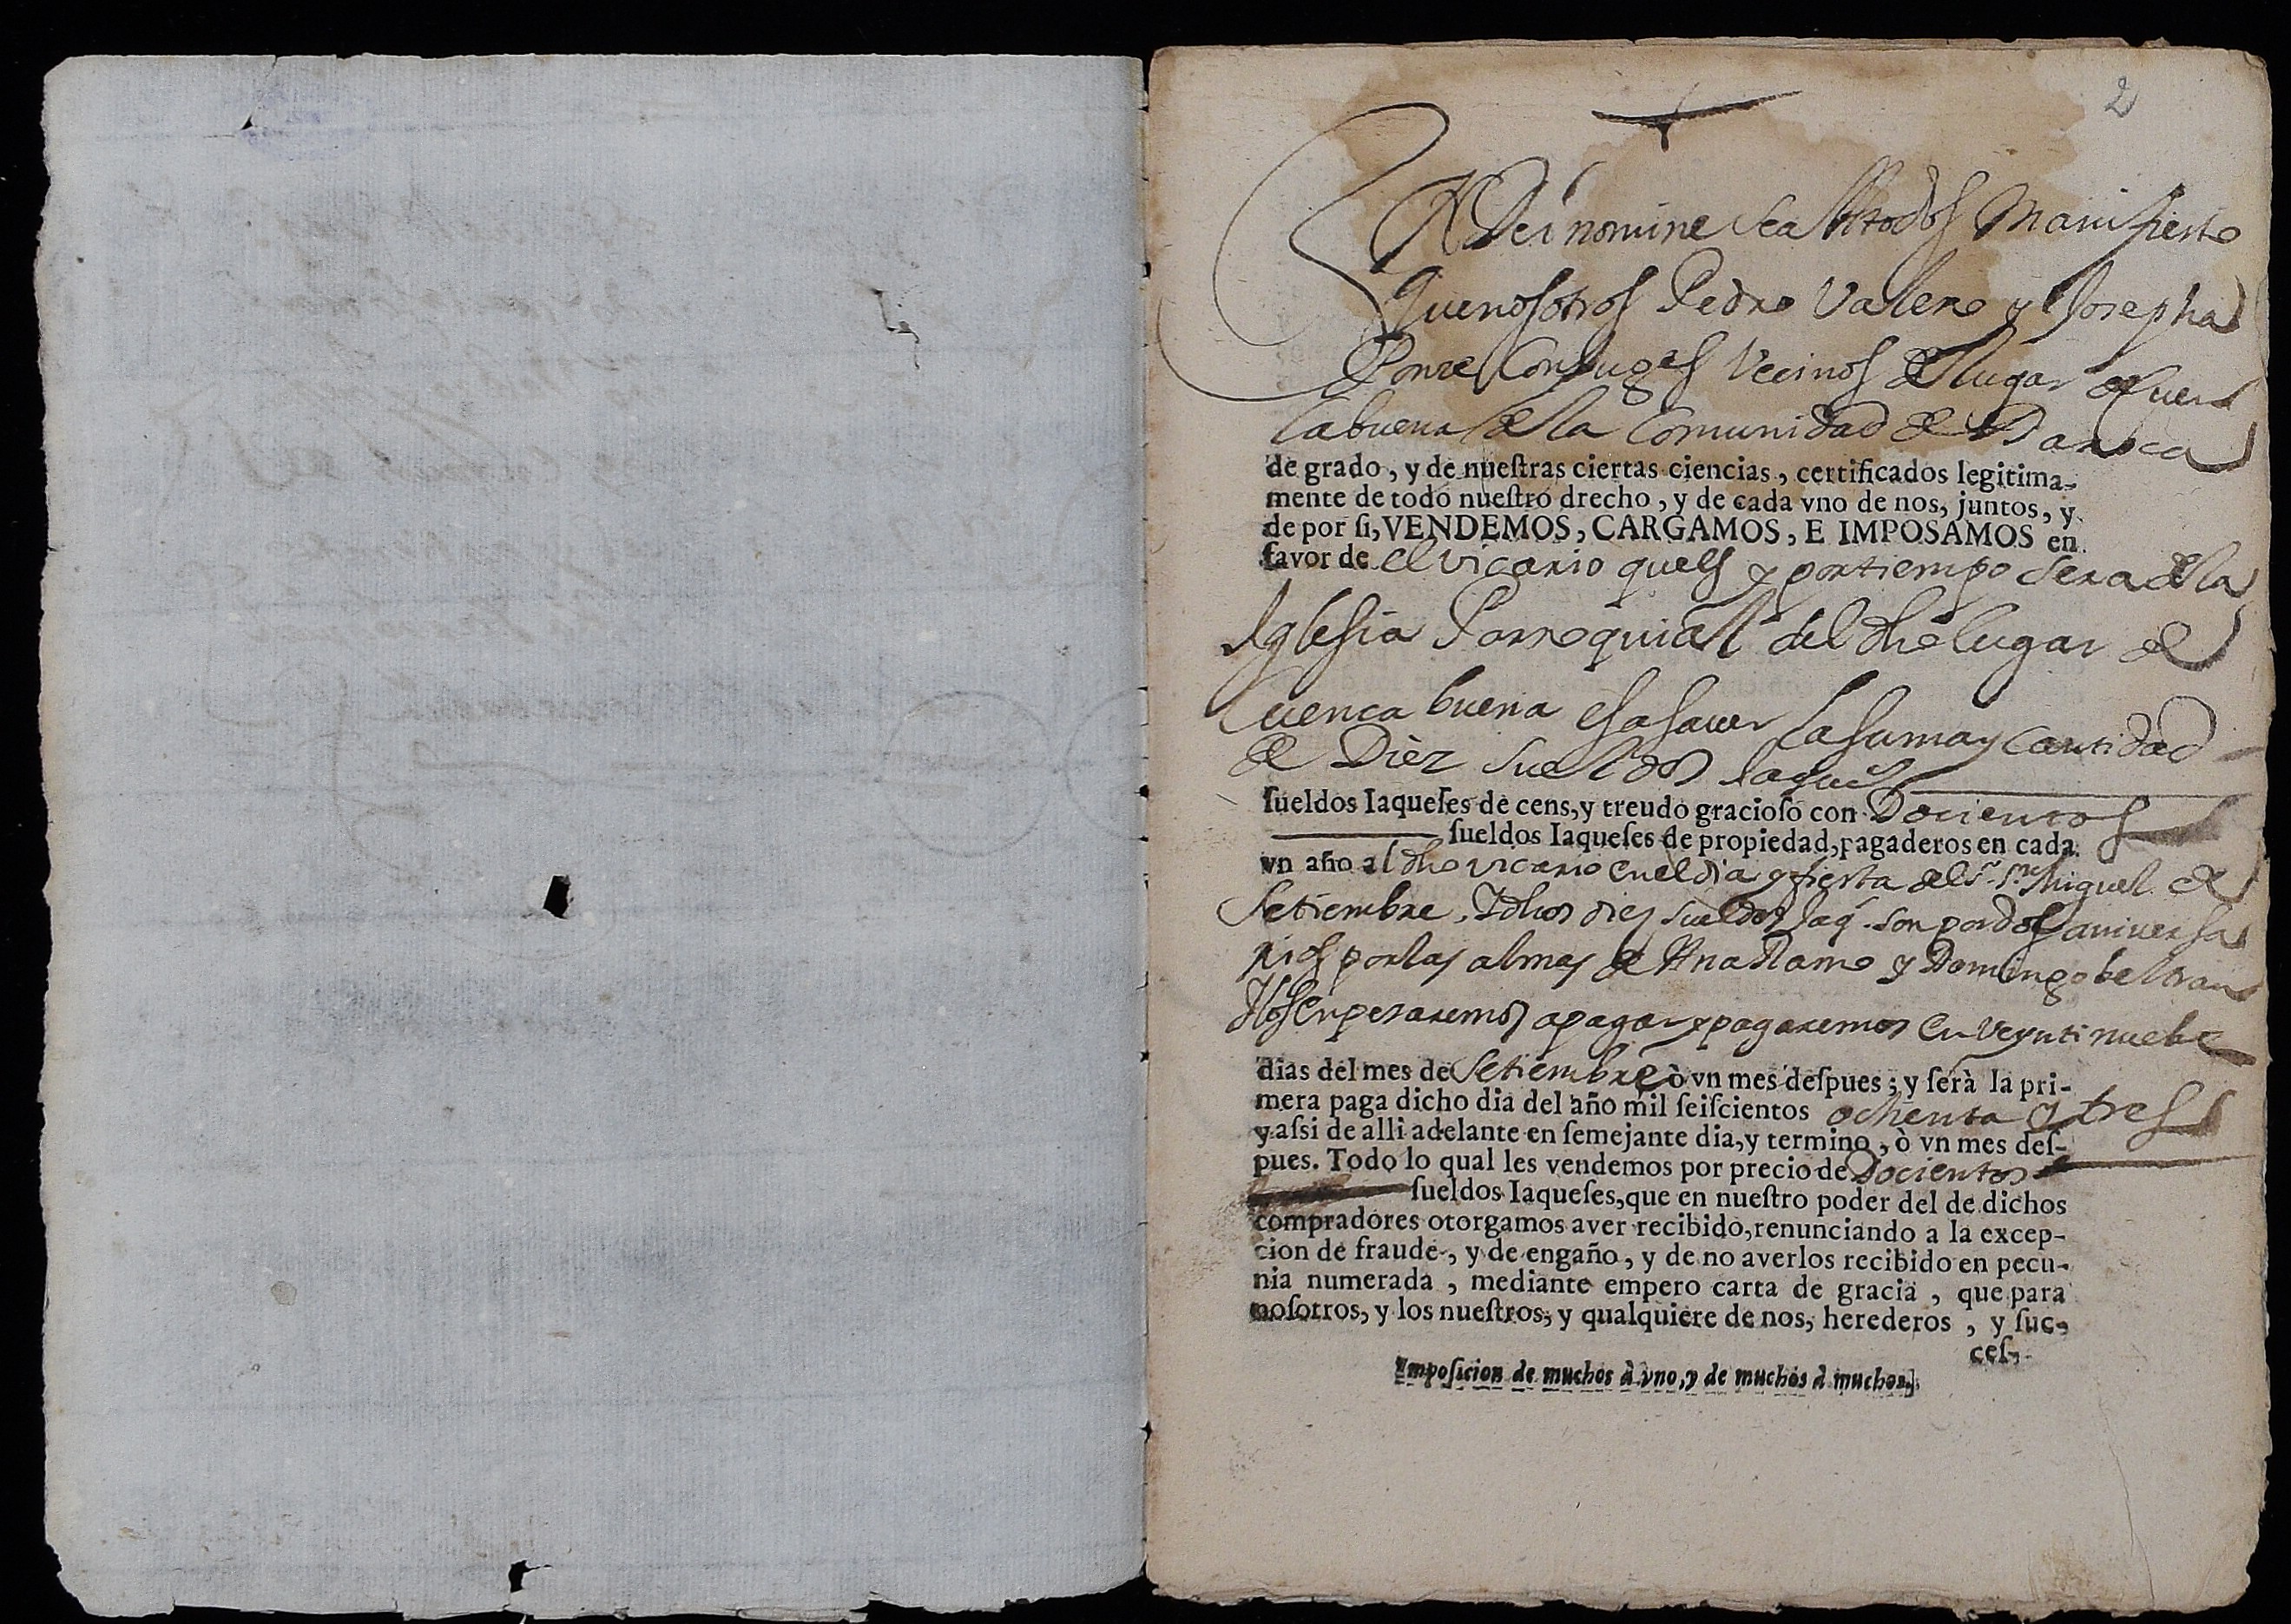 2
Dei nomine Sea Atodos Manifiesto
Quenosotros Pedro Valero y Josepha
Ponze Conjuges Vecinos del lugar de Cuen
cabuena de la Comunidad de Daroca
de grado, y de nueſtras ciertas ciencias, certificados legitima-
mente de todo nueſtro drecho, y de cada vno de nos, juntos, y
de por ſi, VENDEMOS, CARGAMOS, E IMPOSAMOS en
favor de el vicario ques y portiempo sera de la
Iglesia Parroquial del dho lugar de
Cuenca buena esasauer la suma y Cantidad
de Diez sueldos Jaqueses
ſueldos Iaqueſes de cens, y treudo gracioſo con Docientos
ſueldos Iaqueſes de propiedad, pagaderos en cada
vn año al dho vicario en el dia y fiesta del Sr. Sn Miguel de
Setiembre. Y dhos diez sueldos Jaqs. son por dos aniversa
rios por las almas de Ana Ramo y Domingo beltran
Y los enpezaremos apagar y pagaremos en Veynti nuebe
dias del mes de Setiembre ò vn mes deſpues; y ſerà la pri-
mera paga dicho dia del año mil ſeiſcientos ochenta y tres
y aſsi de alli adelante en ſemejante dia, y termino, ò vn mes deſ-
pues. Todo lo qual les vendemos por precio de Docientos
ſueldos Iaqueſes, que en nueſtro poder del de dichos
compradores otorgamos aver recibido, renunciando a la excep-
cion de fraude, y de engaño, y de no averlos recibido en pecu-
nia numerada, mediante empero carta de gracia, que para
noſotros, y los nueſtros, y qualquiere de nos, herederos, y ſuc-
ceſ-
Impoſicion de muchos à vno, y de muchos à muchos.